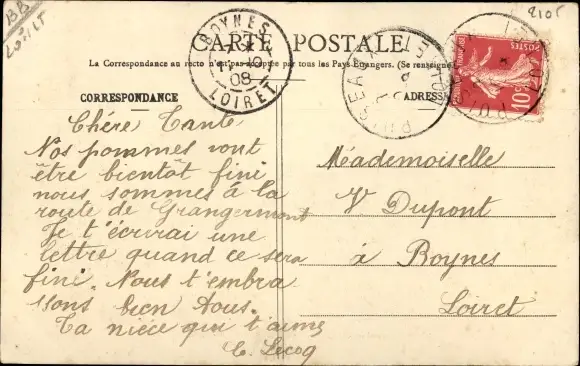 BB
Loiret
2105
CARTE POSTALE
La Correspondance au recto n'est pas acceptée par tous les Pays Etrangers. (Se renseigner
CORRESPONDANCE
ADRESSE
BOYNES
08
LOIRET
POSTES
10c
Chére Tante
Nos pommes vont
être bientôt fini
nous sommes à la
route de Grangermont
Je t'écrirai une
lettre quand ce sera
fini. Nous t'embra
ssons bien tous.
Ta niéce qui t'aime
C. Lecoq
Mademoiselle
V Dupont
à Boynes
Loiret